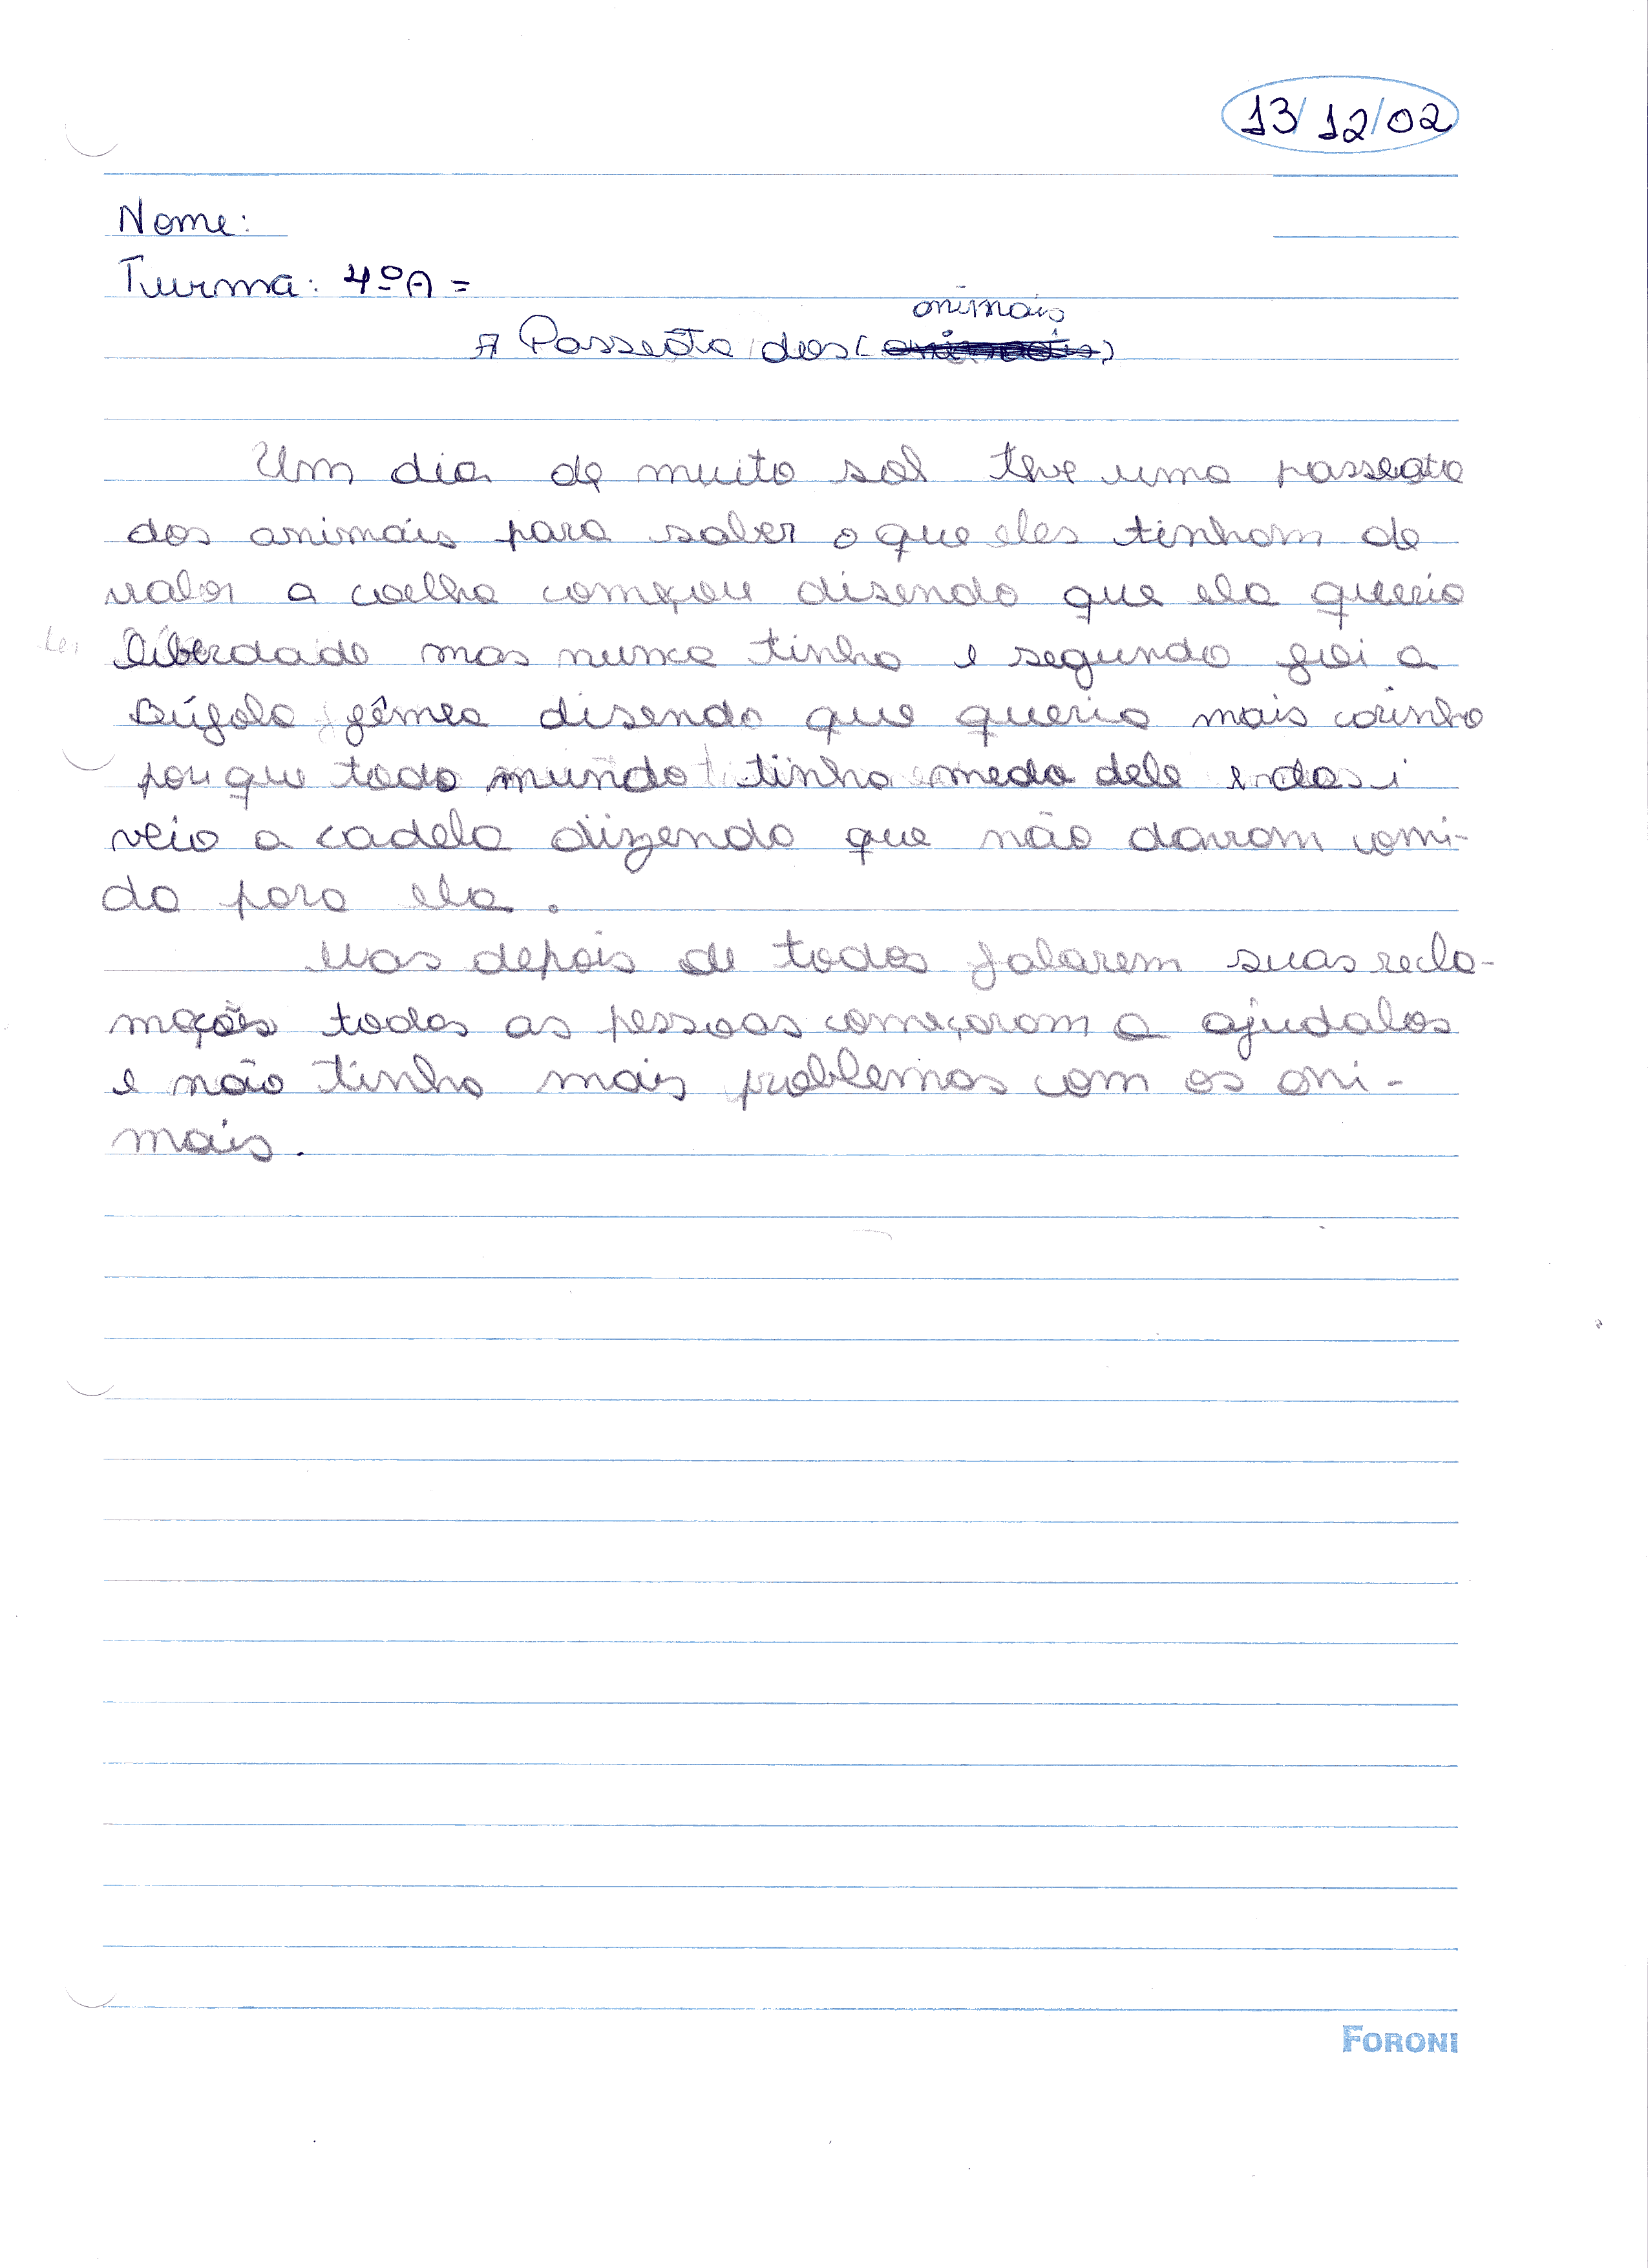 13/12/02
Nome:
Turma: 4ºA =
animáis
A Passeáta dos (animais)
Um dia de muito sol teve uma passeata
dos animáis para saber o que eles tinham de
valor a coelha começou disendo que ela queria
liberdade mas nunca tinha e segundo foi a
Búfala fêmea disendo que queria mais carinho
porque todo mundo tinha medo dele e dasi
veio a cadela dizendo que não davam comi-
da para ela.
Mas depois de todos falarem suas recla-
mações todas as pessoas começaram a ajudalos
e não tinha mais problemas com os ani-
mais.
FORONI